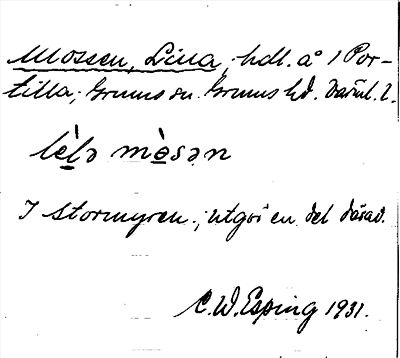 Mossen, Lilla; hdl. a° 1 Por-
tilla; Grums sn. Grums hd. Värml. l.
lèlə mòsən
I Stormyren; utgör en del därav.
C. W. Esping 1931.